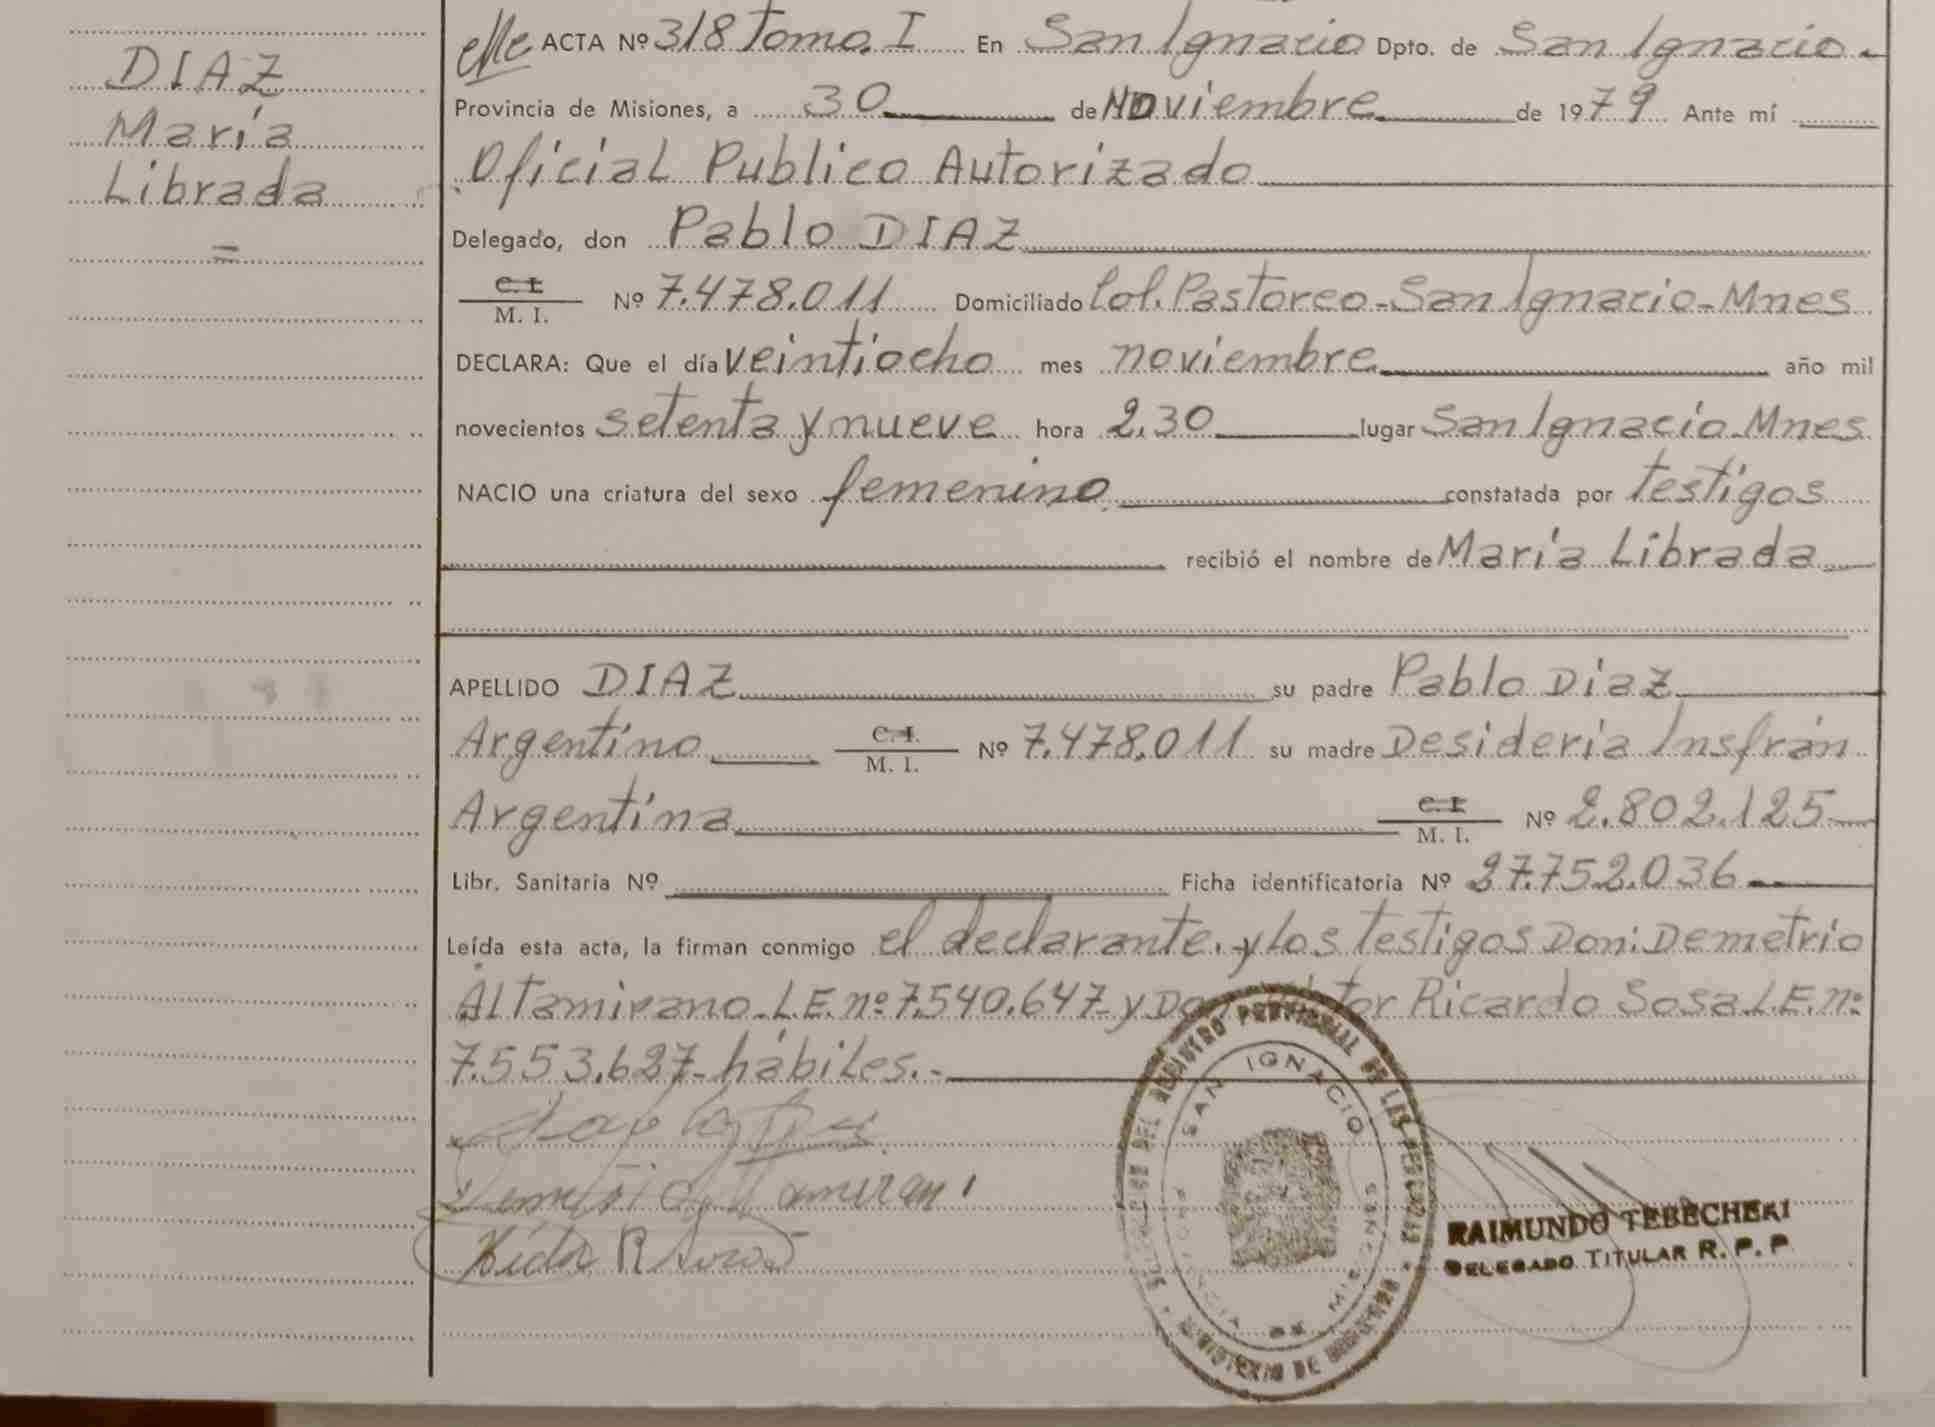 DIAZ
María
Librada
=
ACTA Nº 318 Tomo. I En San Ignacio Dpto. de San Ignacio.
Provincia de Misiones, a 30 de Noviembre de 1979 Ante mí
Oficial Publico Autorizado
Delegado, don Pablo DIAZ
C. I.
M. I. Nº 7.478.011 Domiciliado Col. Pastoreo-San Ignacio-Mnes
DECLARA: Que el día veintiocho mes noviembre año mil
novecientos setenta y nueve hora 2,30 lugar San Ignacio-Mnes
NACIO una criatura del sexo femenino constatada por testigos
recibió el nombre de María Librada
APELLIDO DIAZ su padre Pablo Diaz
Argentino C. I. M. I. Nº 7.478.011 su madre Desideria Insfrán
Argentina C. I. M. I. Nº 2.802.125
Libr. Sanitaria Nº Ficha identificatoria Nº 27.752.036
Leída esta acta, la firman conmigo el declarante. y Los testigos Don: Demetrio
Altamirano-L.E. nº 7.540.647 y Ricardo Sosa L.E. nº
7.553.627-hábiles.-
SAN IGNACIO
PROVINCIA DE MISIONES
RAIMUNDO TEBECHERI
DELEGADO TITULAR R. P. P.